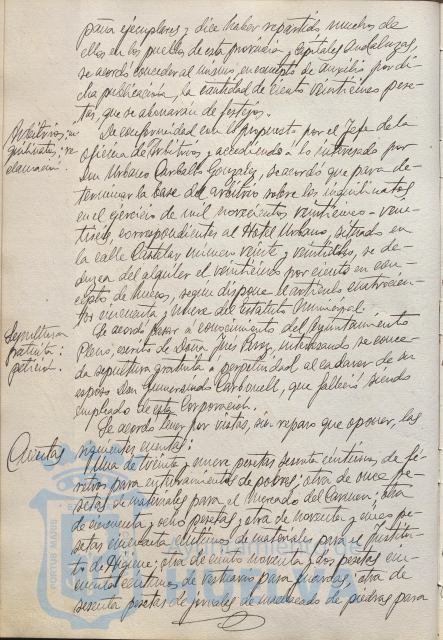 para ejemplares y dice haber repartido muchos de
ellos en los pueblos de esta provincia y capitales Andaluzas,
se acordó conceder al mismo, en concepto de auxilio por di-
cha publicación, la cantidad de ciento veinticinco pese-
tas, que se abonarán de festejos.
Arbitrios: in-
quilinatos; re-
clamación:
De conformidad con lo propuesto por el Jefe de la
oficina de Arbitrios, y accediendo a lo interesado por
Don Urbano Carballo Gonzalez, se acordó que para de-
terminar la base del arbitrio sobre los inquilinatos
en el ejercicio de mil novecientos veinticinco-vein-
tiseis, correspondientes al Hotel Urbano, situado en
la calle Castelar número veinte y veintidós, se de-
duzca del alquiler el veinticinco por ciento en con-
cepto de huecos, según dispone el artículo cuatrocien-
tos cincuenta y nueve del Estatuto Municipal.
Sepultura
gratuita:
petición.
Se acordó pasar a conocimiento del Ayuntamiento
Pleno, escrito de Doña Inés Perez, interesando se conce-
da sepultura gratuita a perpetuidad al cadaver de su
esposo Don Gumersindo Carbonell, que falleció siendo
empleado de esta Corporación.
Cuentas
Se acordó tener por vistas, sin reparo que oponer, las
siguientes cuentas:
Una de treinta y nueve pesetas sesenta centimos, de fé-
retros para enterramientos de pobres; otra de once pe-
setas, de materiales para el Mercado del Carmen; otra
de cincuenta y ocho pesetas, y otra de noventa y cinco pe-
setas cincuenta centimos de materiales para el Institu-
to de Higiene; otra de ciento noventa y dos pesetas cin-
cuenta centimos de vestuarios para guardas; otra de
sesenta pesetas de jornales de machacado de piedras para
PORTUS MARIS
Ayuntamiento de
HUELVA